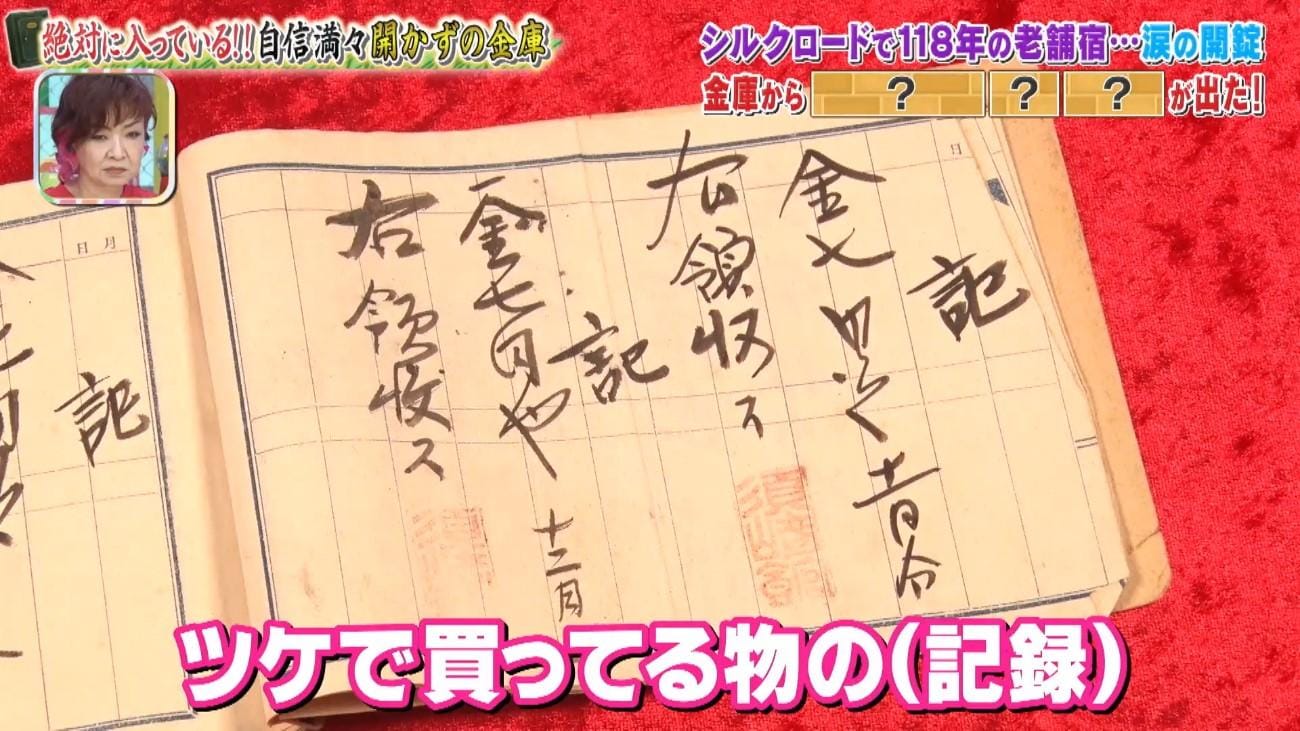 絶対に入っている!!!自信満々開かずの金庫
シルクロードで118年の老舗宿…涙の開錠
金庫から ? ? ? が出た!
月
記
金七
右領収ス
記
金七円也
十二月
右領收ス
月 日
記
ツケで買ってる物の(記録)